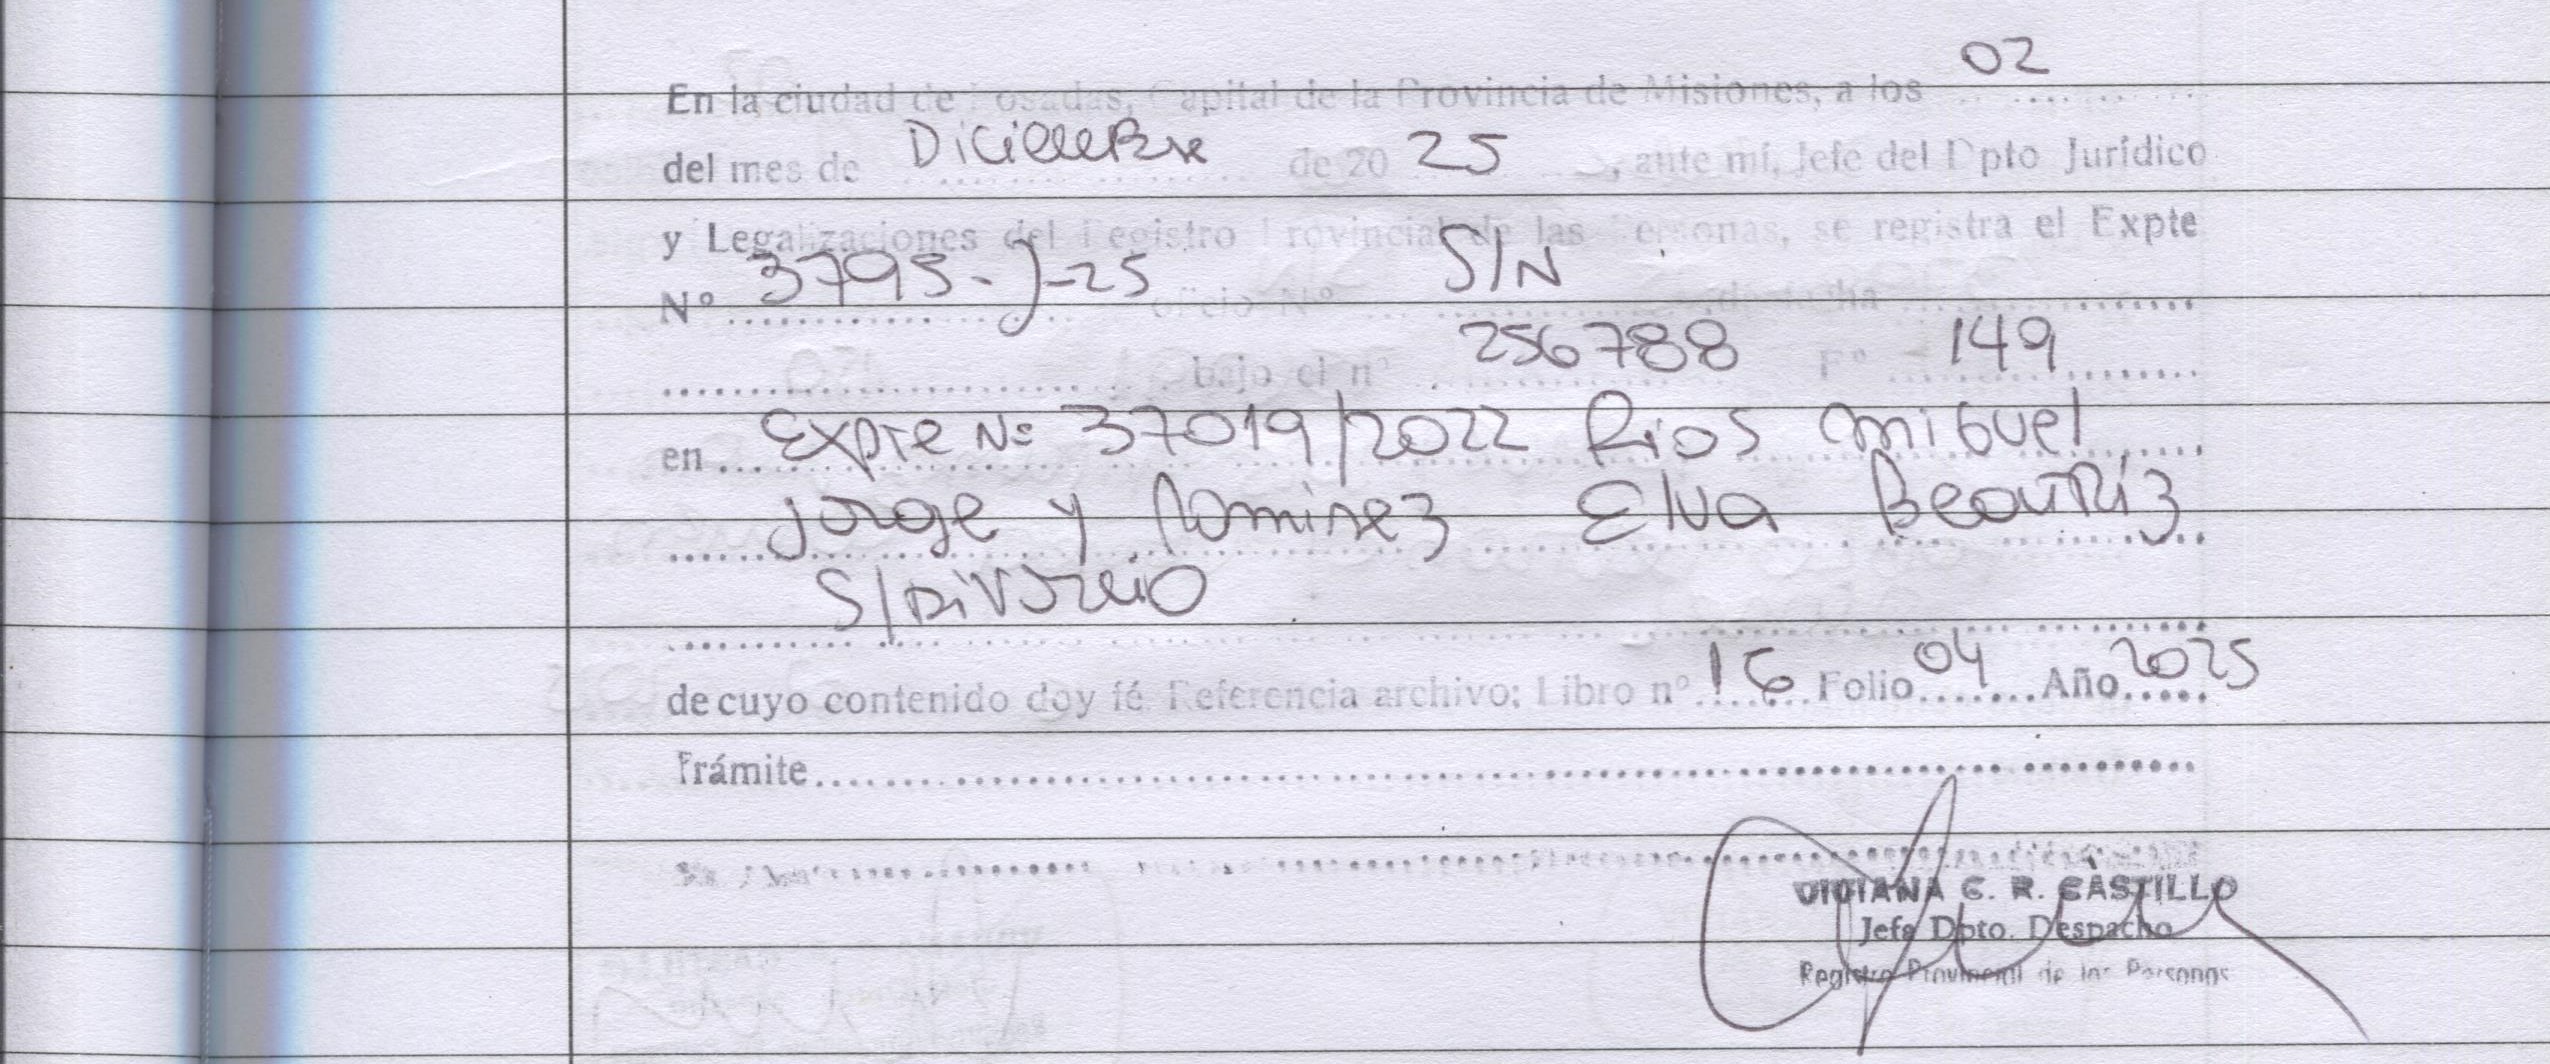 En la ciudad de Posadas, Capital de la Provincia de Misiones, a los 02
del mes de Diciembre de 20 25, ante mí, Jefe del Dpto Jurídico
y Legalizaciones del Registro Provincial de las Personas, se registra el Expte
Nº 3795-J-25 oficio Nº S/N de fecha
bajo el nº 256788 Fº 149
en Expte Nº 37019/2022 Rios Miguel
Jorge y Ramirez Elva Beatriz
S/Divorcio
de cuyo contenido doy fé. Referencia archivo; Libro nº 16 Folio 04 Año 2025
Trámite
VIVIANA C. R. CASTILLO
Jefa Dpto. Despacho
Registro Provincial de las Personas